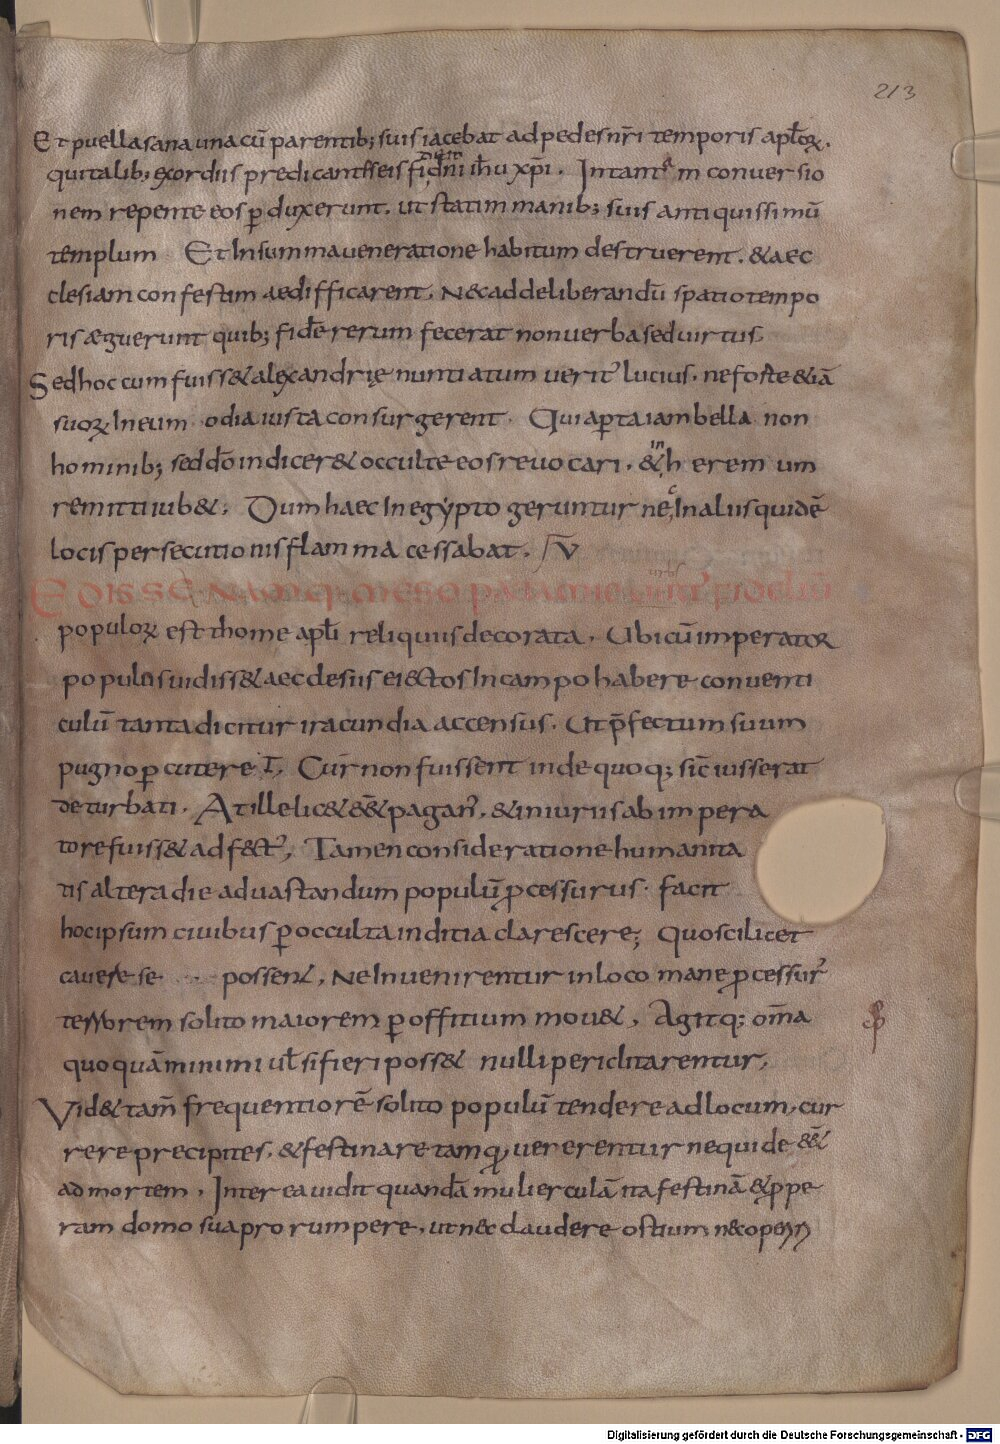 213
Et puella sana una cū parentib; suis iacebat ad pedes nr̄i temporis apl̄oꝝ.
qui talib; exordiis predicantes eis fidē dn̄i ih̄u xp̄i. In tantā m conversio
nem repente eos ꝑduxerunt. ut statim manib; suis antiquissimū
templum Et In summa veneratione habitum destruerent. & aec
clesiam confestim aedifficarent. N& ad deliberandū spatio tempo
ris ægverunt quib; fidē rerum fecerat non verba sed virtus
Sed hoc cum fuiss& alexandrię nuntiatum veritꝰ lucius. ne forte & iā
suoꝝ In eum odia iusta consurgerent. Qui aꝑta iam bella non
hominib; sed dō indicer& occulte eos revocari. & in heremum
remitti iub&; Dum haec In egypto geruntur nec In aliis quidē
locis persecutionis flamma cessabat. V
EDISSENAmq; mesopotamie urbs fidelium
populoꝝ est thome apl̄i reliquiis decorata. Ubi cū imperator
populū sui diss& aeclesiis eiectos In campo habere conventi
culū tanta dicitur iracundia accensus. Ut p̄fectum suum
pugno ꝑcutere I, Cur non fuissent inde quoq; sic iusserat
deturbati. At ille lic& ēē& paganꝰ. & iniuriis ab impera
tore fuiss& adfectꝰ, Tamen consideratione humanita
tis altera die ad vastandum populū ꝓcessurus. facit
hoc ipsum civibus ꝑ occulta inditia clarescere; Quo scilicet
cavere se possent, Ne Invenirentur in loco mane ꝓcessurꝰ
terrorem solito maiorem ꝑ offitium mou&, Agitq; om̄a
quo quā minimi ul̄ si fieri poss& nulli periclitarentur,
Vid& tam̄ frequentiorē solito populū tendere ad locum, cur
rere precipites, & festinare tamq̄ vererentur ne quid e ēē&
ad mortem. Interea vidit quandā mulierculā ita festinā & ꝓpe
ram domo sua prorumpere, ut nec claudere ostium nec operi
Digitalisierung gefördert durch die Deutsche Forschungsgemeinschaft - DFG